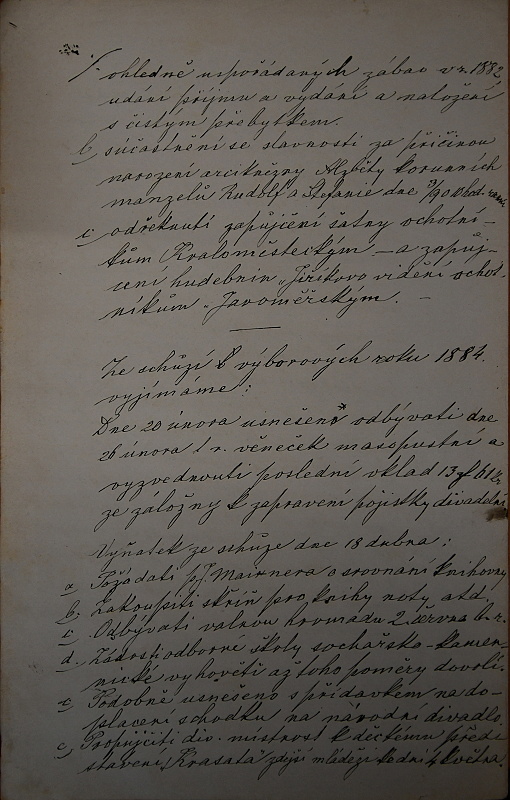 ohledně uspořádaných zábav v r. 1882,
udání příjmu a vydání a naložení
s čistým přebytkem.
b, súčastnění se slavnosti za příčinou
narození arcikněžny Alžběty korunních
manželů Rudolf a Štefanie dne
c, odřeknutí zapůjčení šatny ochotní-
kům Královéměsteckým. — a zapůj-
čení hudebnin "Jiříkovo vidění ochot-
níkům "Jaroměřským. —
Ze schůzí 8 výborových roku 1884.
vyjímáme:
Dne 20 února usnešeno odbývati dne
26 února t. r. věneček masopustní a
vyzvednouti poslední vklad 13 zl 61 kr
ze záložny k zapravení pojistky divadelní
Výňatek ze schůze dne 18 dubna:
a Požádati p. J. Mairnera o srovnání knihovny
b, Zakoupiti skříň pro knihy noty atd,
c, Odbývati valnou hromadu 2. června t. r.
d. Žádosti odborné školy sochařsko-kamen-
nické vyhověti až toho poměry dovolí.
e Podobně usnešeno s přídavkem na do-
placení schodku na národní divadlo,
e, Propůjčiti div. místnost k dětskému před-
stavení "Krasata" zdejší mládeži ke dni 4 května.